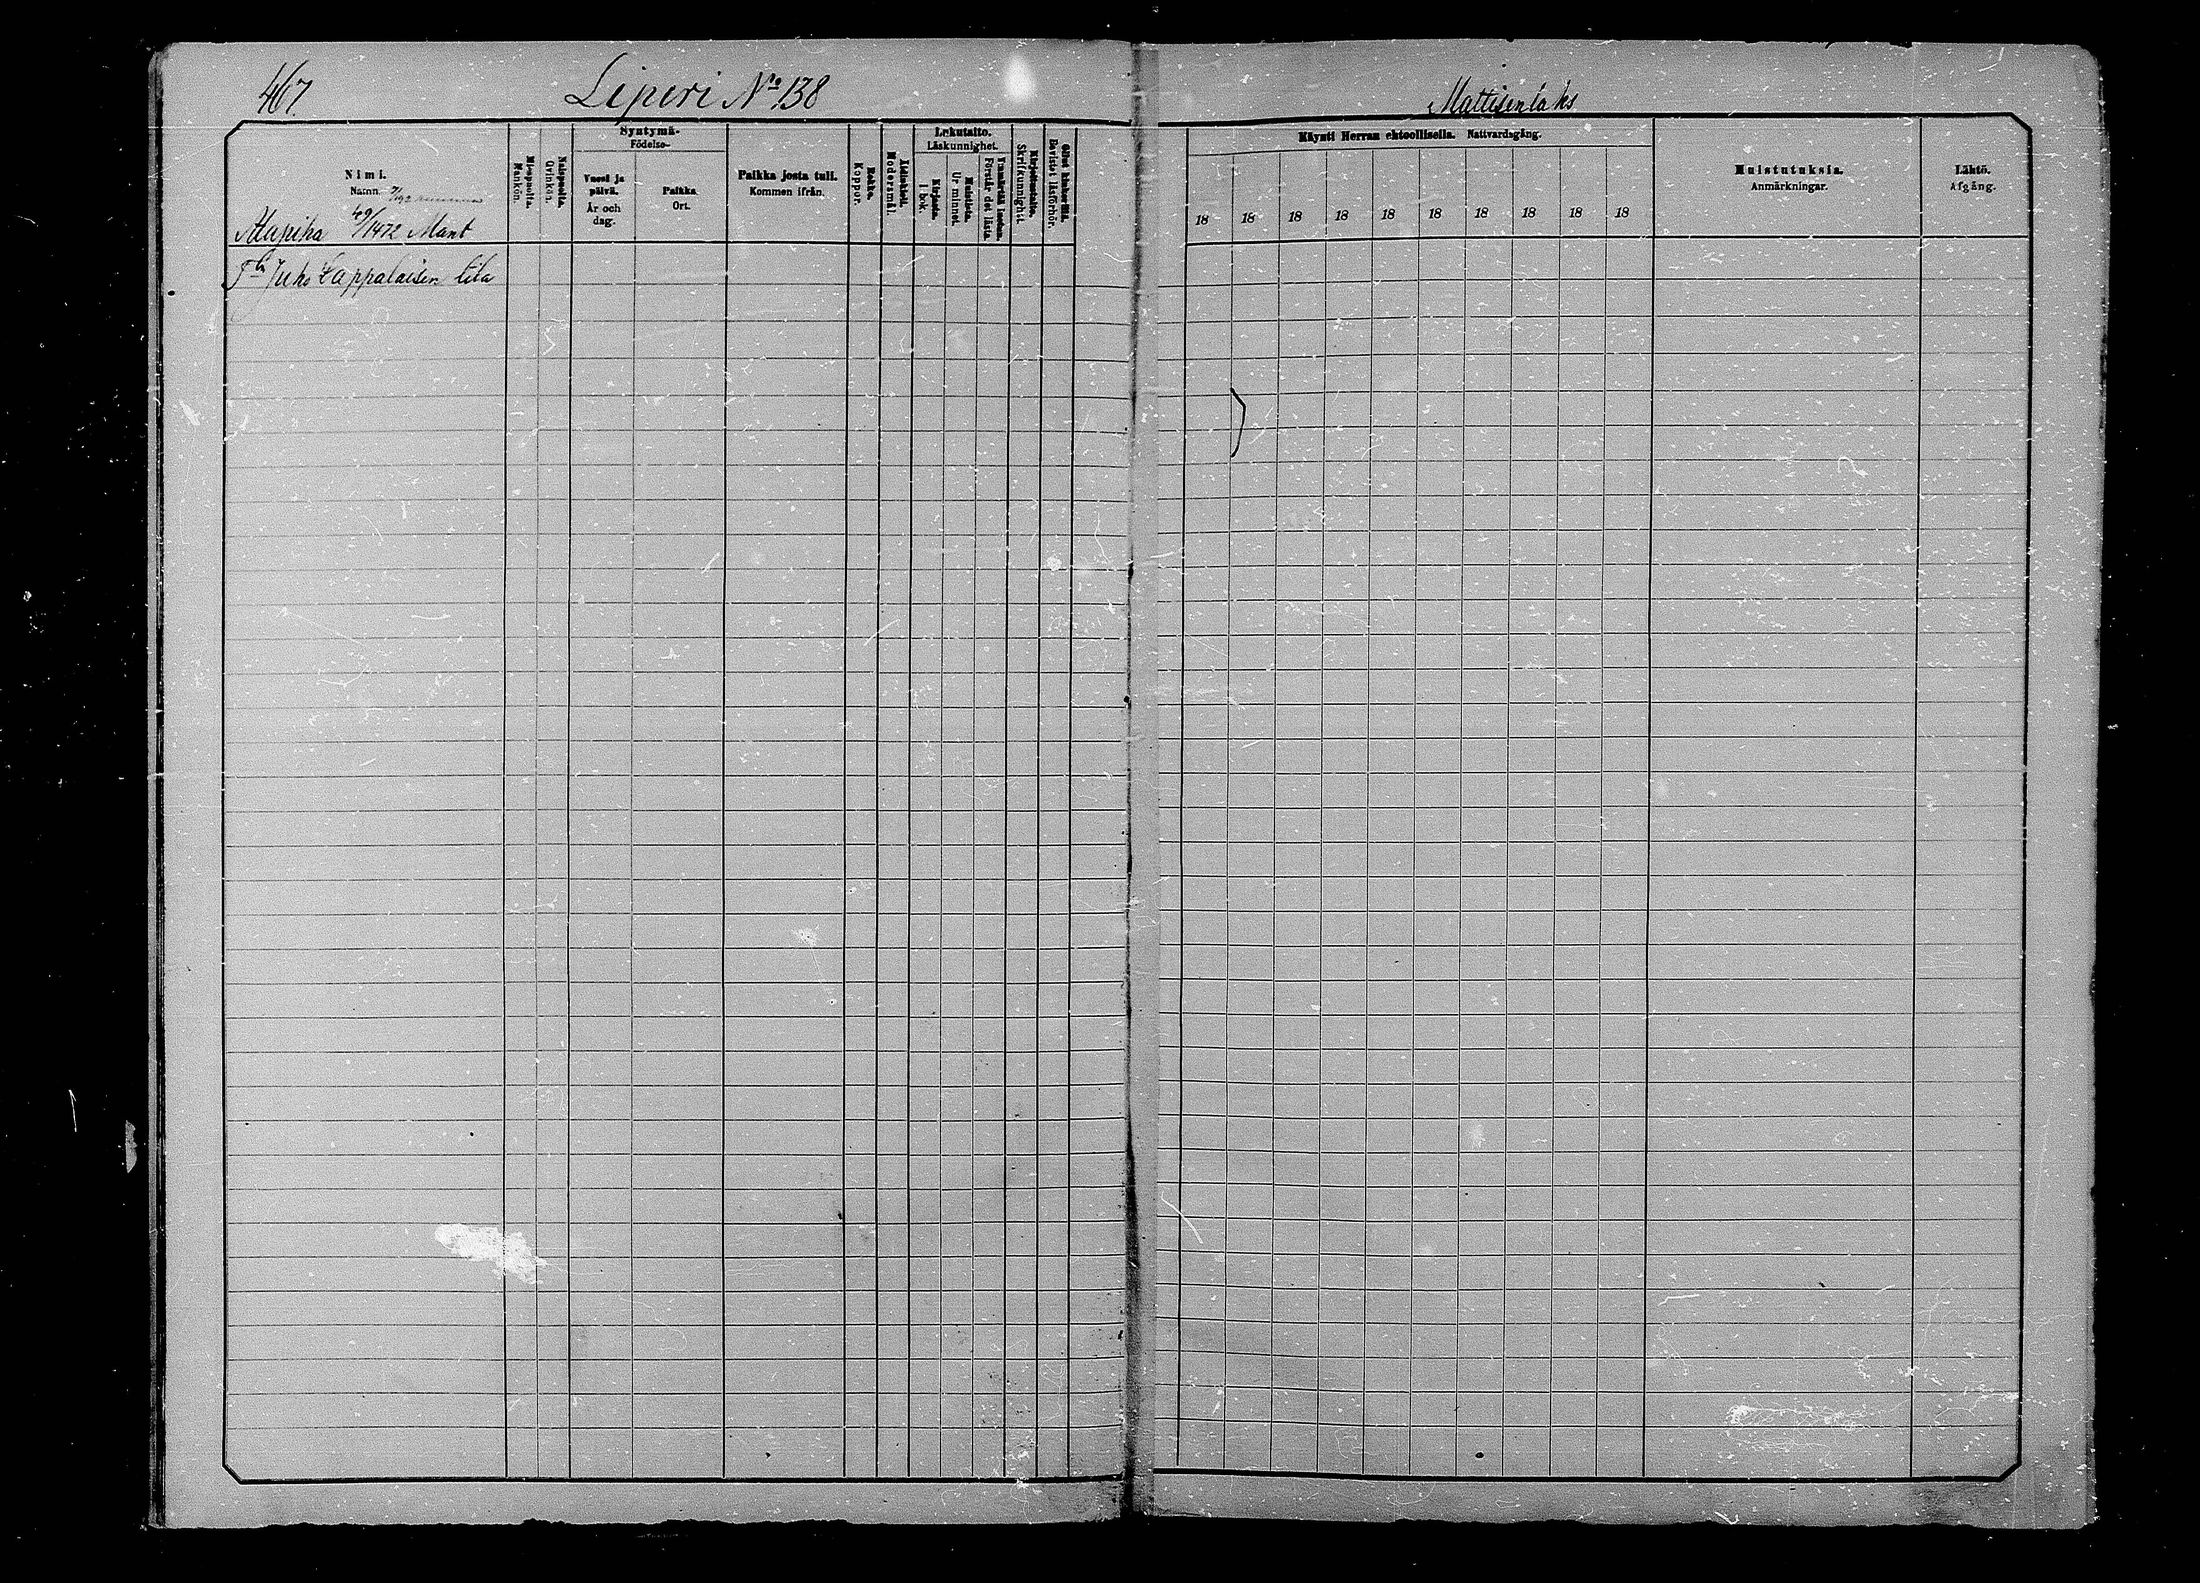 467.
Liperi No 138
Mattisenlaks
Nimi.
Namn.
Alapiha 49/1472 Mant
Miespuolta.
Mankön.
Naispuolta.
Qvinkön.
Syntymä-
Födelse-
Vuosi ja päivä.
År och dag.
Paikka.
Ort.
Paikka josta tuli.
Kommen ifrån.
Rokko.
Koppor.
Äidinkieli.
Modersmål.
Lukutaito.
Läskunnighet.
Kirjasta.
I bok.
Muistista.
Ur minnet.
Ymmärtää luetun.
Förstår det lästa.
Kirjoitustaito.
Skrifkunnighet.
Ollut kinkerillä.
Bevistat läsförhör.
Käynti Herran ehtoollisella. Nattvardsgång.
18 18 18 18 18 18 18 18 18 18
Muistutuksia.
Anmärkningar.
Lähtö.
Afgång.
Juho Lappalaisen tila